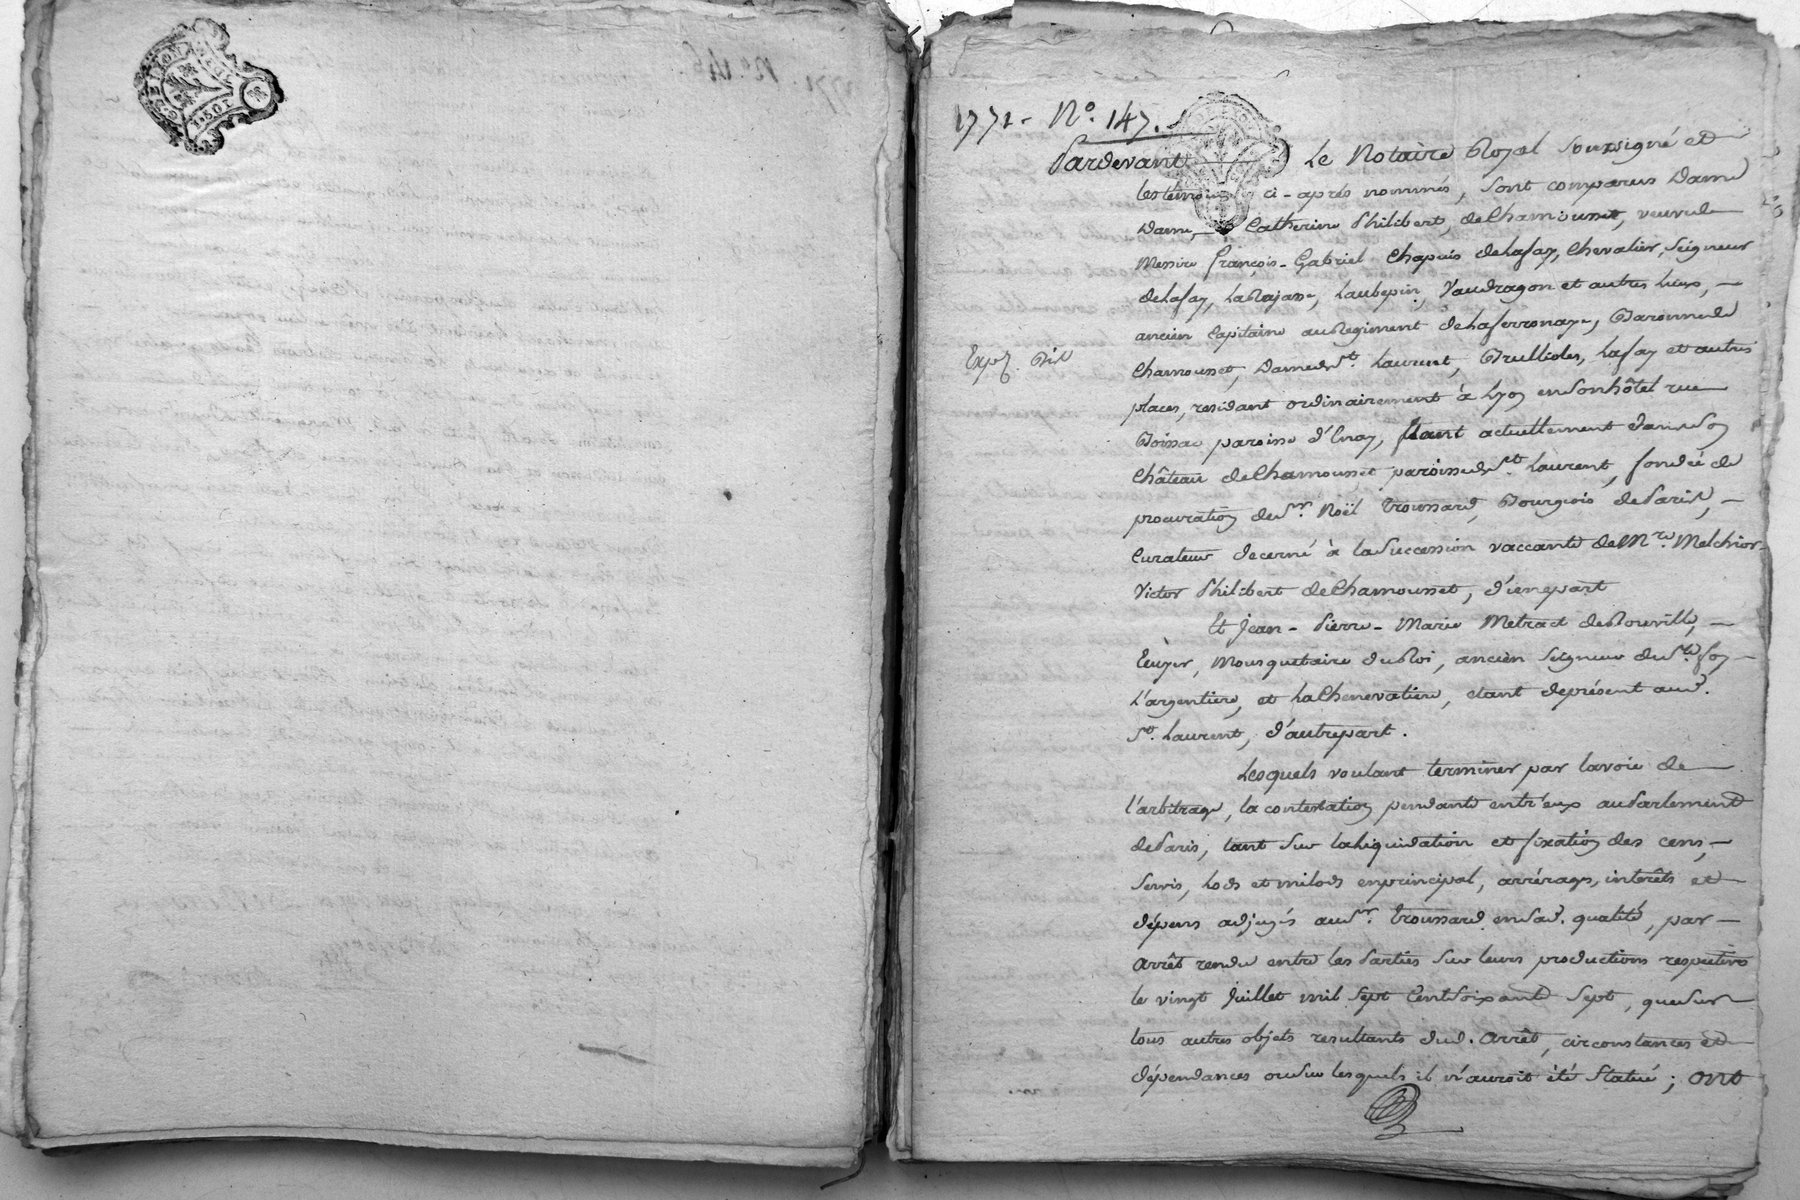 1771. N°. 147.
Pardevant Le Notaire Royal soussigné et
les temoins ci-après nommés, sont comparus Dame
Dame, Catherine Philibert, de Chamousset, veuve de
Messire françois-Gabriel Chapuis de Lafay, Chevalier, Seigneur
de Lafay, Laubepin, Vaudragon et autres Lieux,
ancien Capitaine au Regiment de Laferronaye, Baronne de
Chamousset, Dame de St. Laurent, Brullioles, Lafay et autres
places, residant ordinairement à Lyon en son hôtel rue
Boissac paroisse d'Enay, Etant actuellement dans son
Château de Chamousset paroisse de St. Laurent, fondée de
procuration de Sr. Noël Troussard, Bourgeois de Paris,
Curateur decerné à la Succession vaccante de Mre. Melchior-
Victor Philibert de Chamousset, d'une part
Et Jean-Pierre-Marie Metra de Rouville,
Ecuyer, Mousquetaire du Roi, ancien Seigneur de Ste. foy
L'argentiere, et La Chenevatiere, etant de présent aud.
St. Laurent, d'autre part.
Lesquels voulant terminer par la voie de
l'arbitrage, la contestation pendante entr'eux au Parlement
de Paris, tant sur la liquidation et fixation des cens,
servis, Lods et milods en principal, arrérages, interêts et
dépens adjugés au Sr. Troussard en sad. qualité, par
Arrêt rendu entre les Parties sur leurs productions respectives
le vingt Juillet mil sept Cent soixante Sept, que sur
tous autres objets resultants dud. Arrêt, circonstances et
dépendances ou sur lesquels il n'auroit été Statué; ont